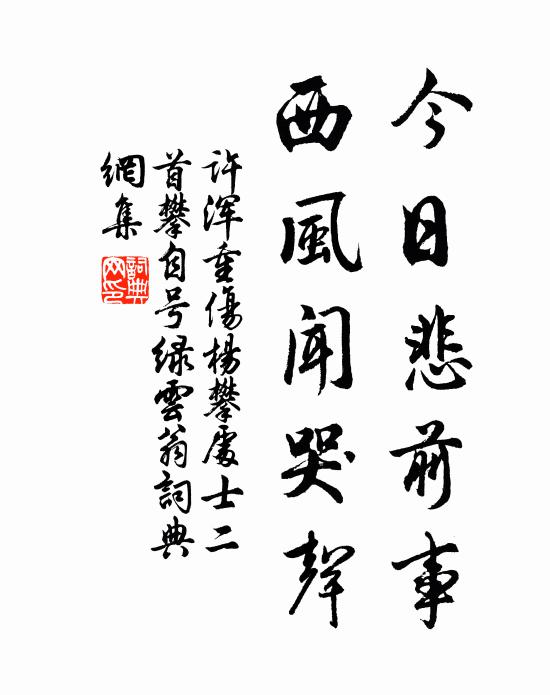 今日悲前事
西風聞哭聲
许浑重傷楊攀處士二
首攀自号緑雲翁詞典
網集
詞典網印